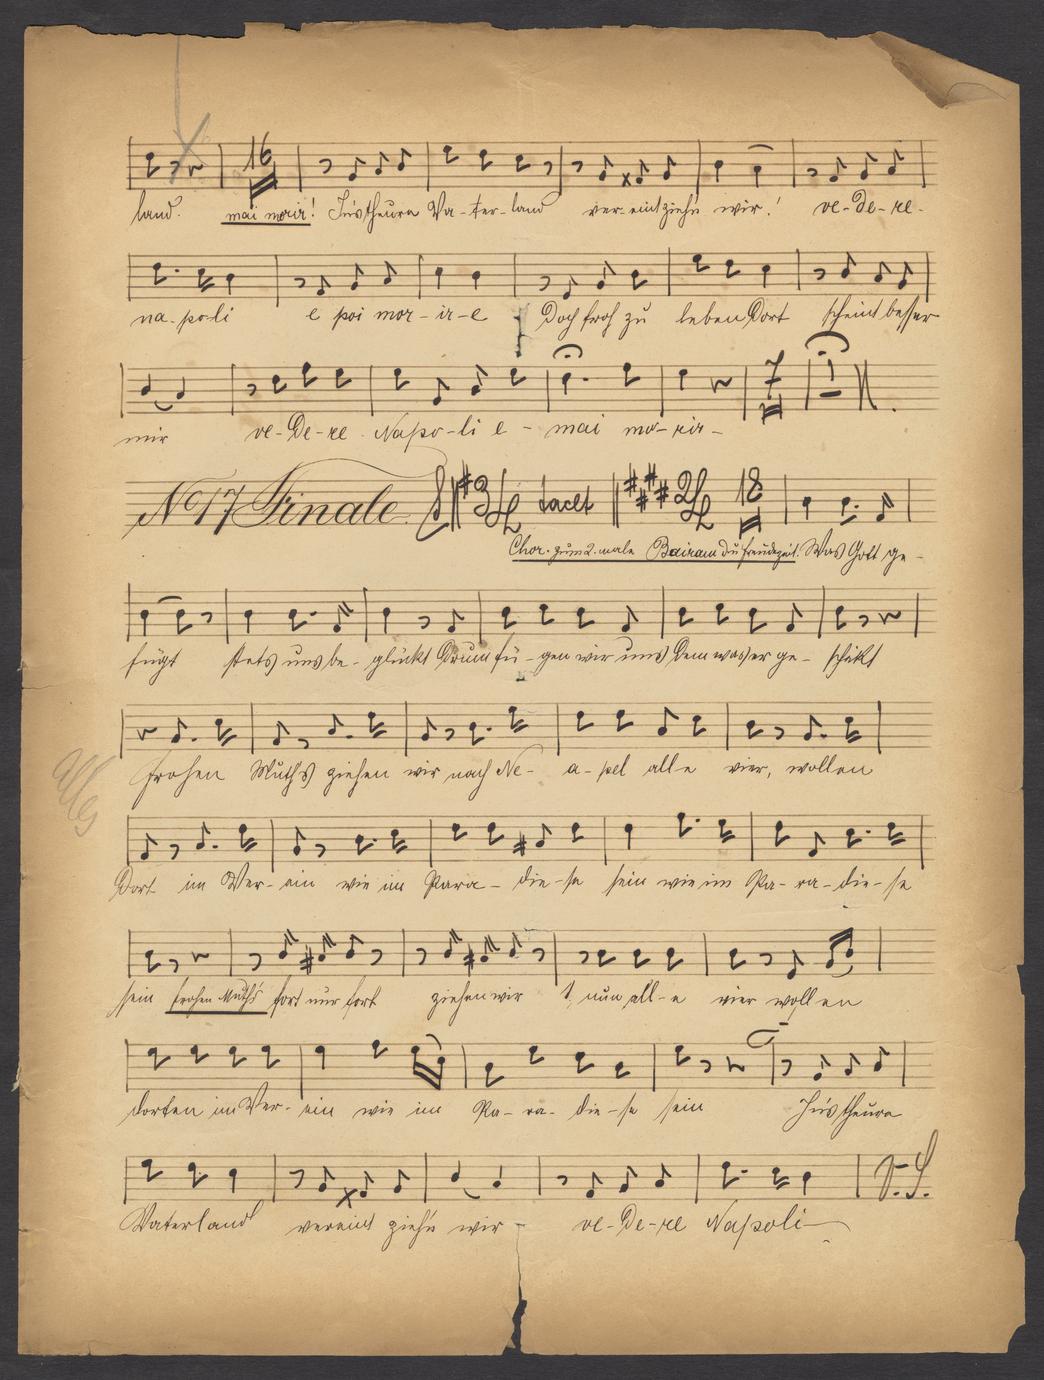 16
land. mai morir! In's theura Va-ter-land ver-eint ziehn wir! ve-de-re-
na-po-li e poi mor-ir-e Doch froh zu leben Dort scheint besser
7 1
mir ve-de-re Napo-li e - mai mo-rir-
No 17 Finale. 3/4 tacet 2/4 18
Chor. zum 2. male Bairam du freudezeit! Was Gott ge-
fügt stets uns be-glückt Drum fü-gen wir uns Dem was er ge-schikt
frohen Muths ziehen wir nach Ne-a-pel alle vier, wollen
Alles
Dort im Ver-ein wie im Para-die-se sein wie im Pa-ra-die-se
sein frohen Muth's fort nur fort ziehen wir nun all-e vier wollen
dorten im Ver-ein wie im Pa-ra-die-se sein In's theura
V.S.
Vaterland vereint zieh'n wir - ve-de-re Napoli